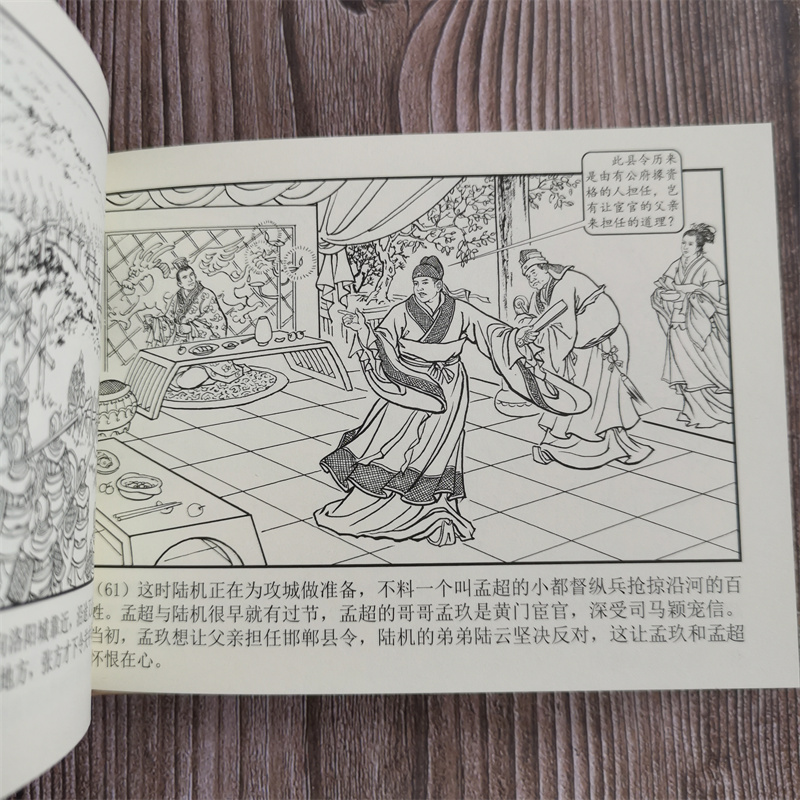 此县令历来
是由有公府掾资
格的人担任，岂
有让宦官的父亲
来担任的道理？
（61）这时陆机正在为攻城做准备，不料一个叫孟超的小都督纵兵抢掠沿河的百
姓。孟超与陆机很早就有过节，孟超的哥哥孟玖是黄门宦官，深受司马颖宠信。
当初，孟玖想让父亲担任邯郸县令，陆机的弟弟陆云坚决反对，这让孟玖和孟超
怀恨在心。
向洛阳城靠近，沿
地方，张方才下令